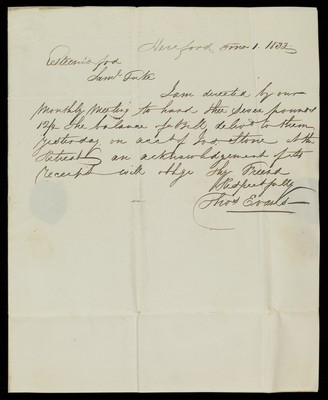 Hereford 1.
Esteemed frd
Saml Tuke
I am directed by our
Monthly Meeting to hand thee seven pounds
12/- the balance of Bill delivd to them
yesterday on acct of Stone at the
Retreat an acknowledgement of its
receipt will oblige Thy Friend
Respectfully
Thos Evans